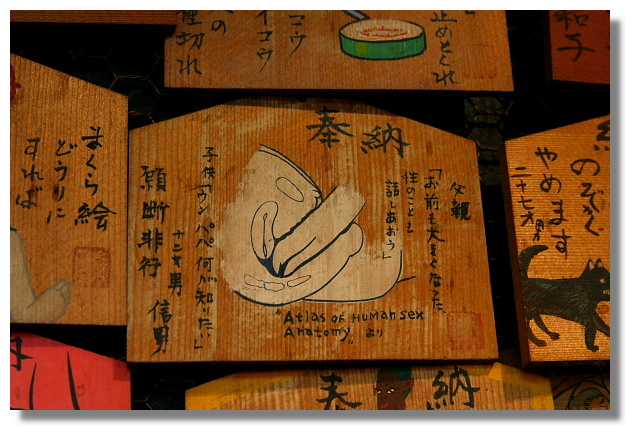 止めとくれ
コウ
イコウ
の
切れ
和子
まくら絵
どうりに
すれば
奉納
父親
「お前も大きくなった、
性のことも
話しあおう」
子供「ウンパパ何が知りたい」
十二才男
信男
願断非行
"Atlas of Human sex
Anatomy" より
のぞく
やめます
二十七才
奉納